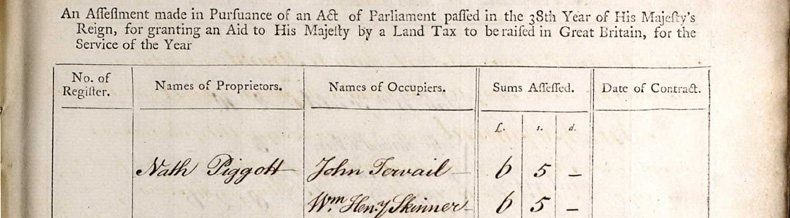 An Aſſeſſment made in Purſuance of an Act of Parliament paſſed in the 38th Year of His Majeſty's
Reign, for granting an Aid to His Majeſty by a Land Tax to be raiſed in Great Britain, for the
Service of the Year
No. of Regiſter. Names of Proprietors. Names of Occupiers. Sums Aſſeſſed. Date of Contract.
£. s. d.
Nath Piggott John Tervail 6 5 –
Wm. Heny Skinner 6 5 –